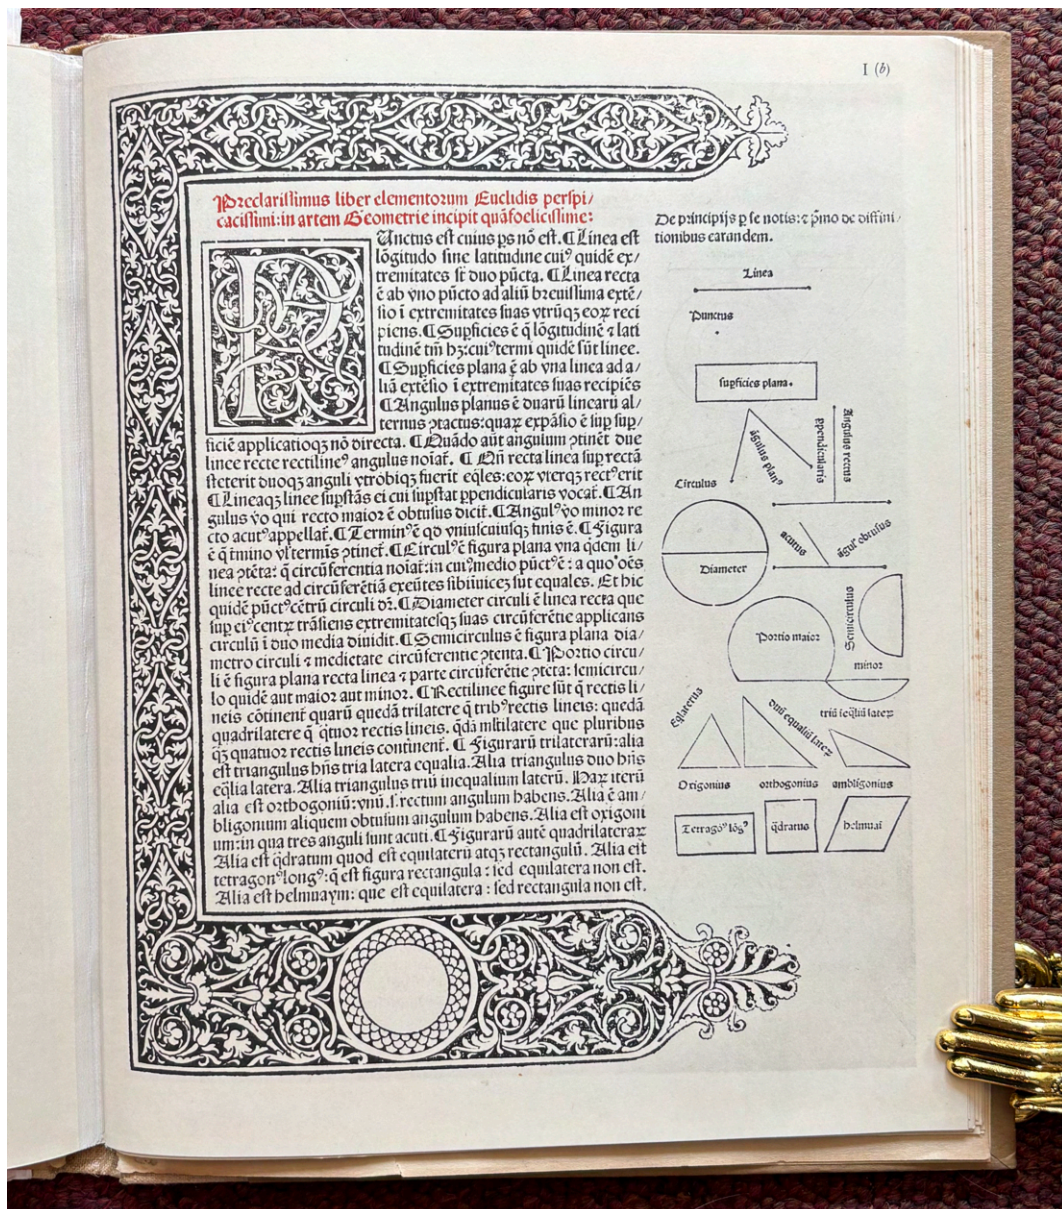 I (b)
Preclarissimus liber elementorum Euclidis perspi/
cacissimi: in artem Geometrie incipit quãfoelicissime:
PUnctus est cuius ps nõ est. ¶ Linea est
lõgitudo sine latitudine cui⁹ quidẽ ex/
tremitates sũt duo pũcta. ¶ Linea recta
ẽ ab vno pũcto ad aliũ breuissima extẽ/
sio ĩ extremitates suas vtrũqꝫ eoꝝ reci
piens. ¶ Supficies ẽ q̃ lõgitudinẽ ⁊ lati
tudinẽ tm̃ hꝫ: cui⁹ termi quidẽ sũt linee.
¶ Supficies plana ẽ ab vna linea ad a/
liũ extẽsio ĩ extremitates suas recipiẽs
¶ Angulus planus ẽ duarũ linearũ al/
ternus ꝯtactus: quaꝝ expãsio ẽ sup sup/
ficiẽ applicatioqꝫ nõ directa. ¶ Quãdo aũt angulum ꝯtinẽt due
linee recte rectiline⁹ angulus noiat̃. ¶ Qñ recta linea sup rectã
steterit duoqꝫ anguli vtrobiqꝫ fuerit eq̃les: eoꝝ vterqꝫ rect⁹ erit
¶ Lineaqꝫ linee supstãs ei cui supstat ppendicularis vocat̃. ¶ An
gulus ṽo qui recto maior ẽ obtusus dicit̃. ¶ Angul⁹ ṽo minor re
cto acut⁹ appellat̃. ¶ Termin⁹ ẽ qd̃ vniuscuiusqꝫ finis ẽ. ¶ Figura
ẽ q̃ tmino vl̃ termis ꝯtinet̃. ¶ Circul⁹ ẽ figura plana vna qdem li/
nea ꝯtẽta: q̃ circũferentia noiat̃: in cui⁹ medio pũct⁹ ẽ: a quo oẽs
linee recte ad circũferẽtiã exeũtes sibiinuicẽ sut equales. Et hic
quidẽ pũct⁹ cẽtrũ circuli dr̃. ¶ Diameter circuli ẽ linea recta que
sup ei⁹ centꝝ trãsiens extremitatesqꝫ suas circũferẽtie applicans
circulũ ĩ duo media diuidit. ¶ Semicirculus ẽ figura plana dia/
metro circuli ⁊ medietate circũferentie ꝯtenta. ¶ Portio circu/
li ẽ figura plana recta linea ⁊ parte circũferẽtie ꝯtẽta: semicircu/
lo quidẽ aut maior aut minor. ¶ Rectilinee figure sũt q̃ rectis li/
neis cõtinent̃ quarũ quedã trilatere q̃ trib⁹ rectis lineis: quedã
quadrilatere q̃ q̃tuor rectis lineis. q̃dã mltilatere que pluribus
qꝫ quatuor rectis lineis continent̃. ¶ Figurarũ trilaterarũ: alia
est triangulus hñs tria latera equalia. Alia triangulus duo hñs
eq̃lia latera. Alia triangulus triũ inequalium laterũ. Haꝝ iterũ
alia est orthogoniũ: vnũ .s. rectum angulum habens. Alia ẽ am/
bligonium aliquem obtusum angulum habens. Alia est oxigoni
um: in qua tres anguli sunt acuti. ¶ Figurarũ autẽ quadrilateraꝝ
Alia est q̃dratum quod est equilaterũ atqꝫ rectangulũ. Alia est
tetragon⁹ long⁹: q̃ est figura rectangula: sed equilatera non est.
Alia est helmuaym: que est equilatera: sed rectangula non est.
De principijs p se notis: ⁊ p̃mo de diffini/
tionibus earandem.
Linea
Punctus
supficies plana.
ãgulus plan⁹
ppendicularis
Angulus rectus
Circulus
Diameter
acutus
ãgul⁹ obtusus
Semicirculus
Portio maior
minor
Eq̃laterus
duũ equaliũ lateꝝ
triũ ieq̃liũ lateꝝ
Oxigonius
orthogonius
ambligonius
Tetrago⁹ lõg⁹
q̃dratus
helmuaĩ